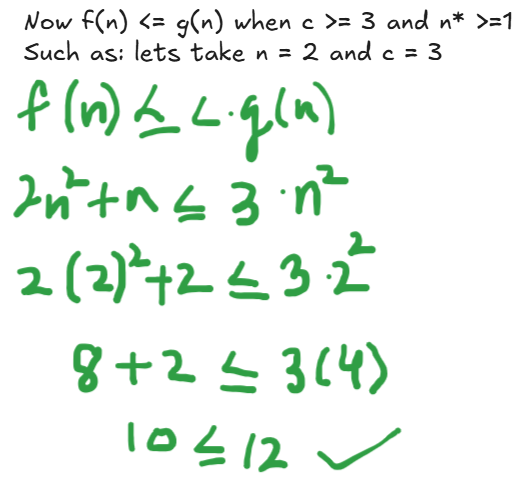 Now f(n) <= g(n) when c >= 3 and n* >=1
Such as: lets take n = 2 and c = 3
f(n) ≤ c·g(n)
2n²+n ≤ 3·n²
2(2)²+2 ≤ 3·2²
8+2 ≤ 3(4)
10 ≤ 12 ✓